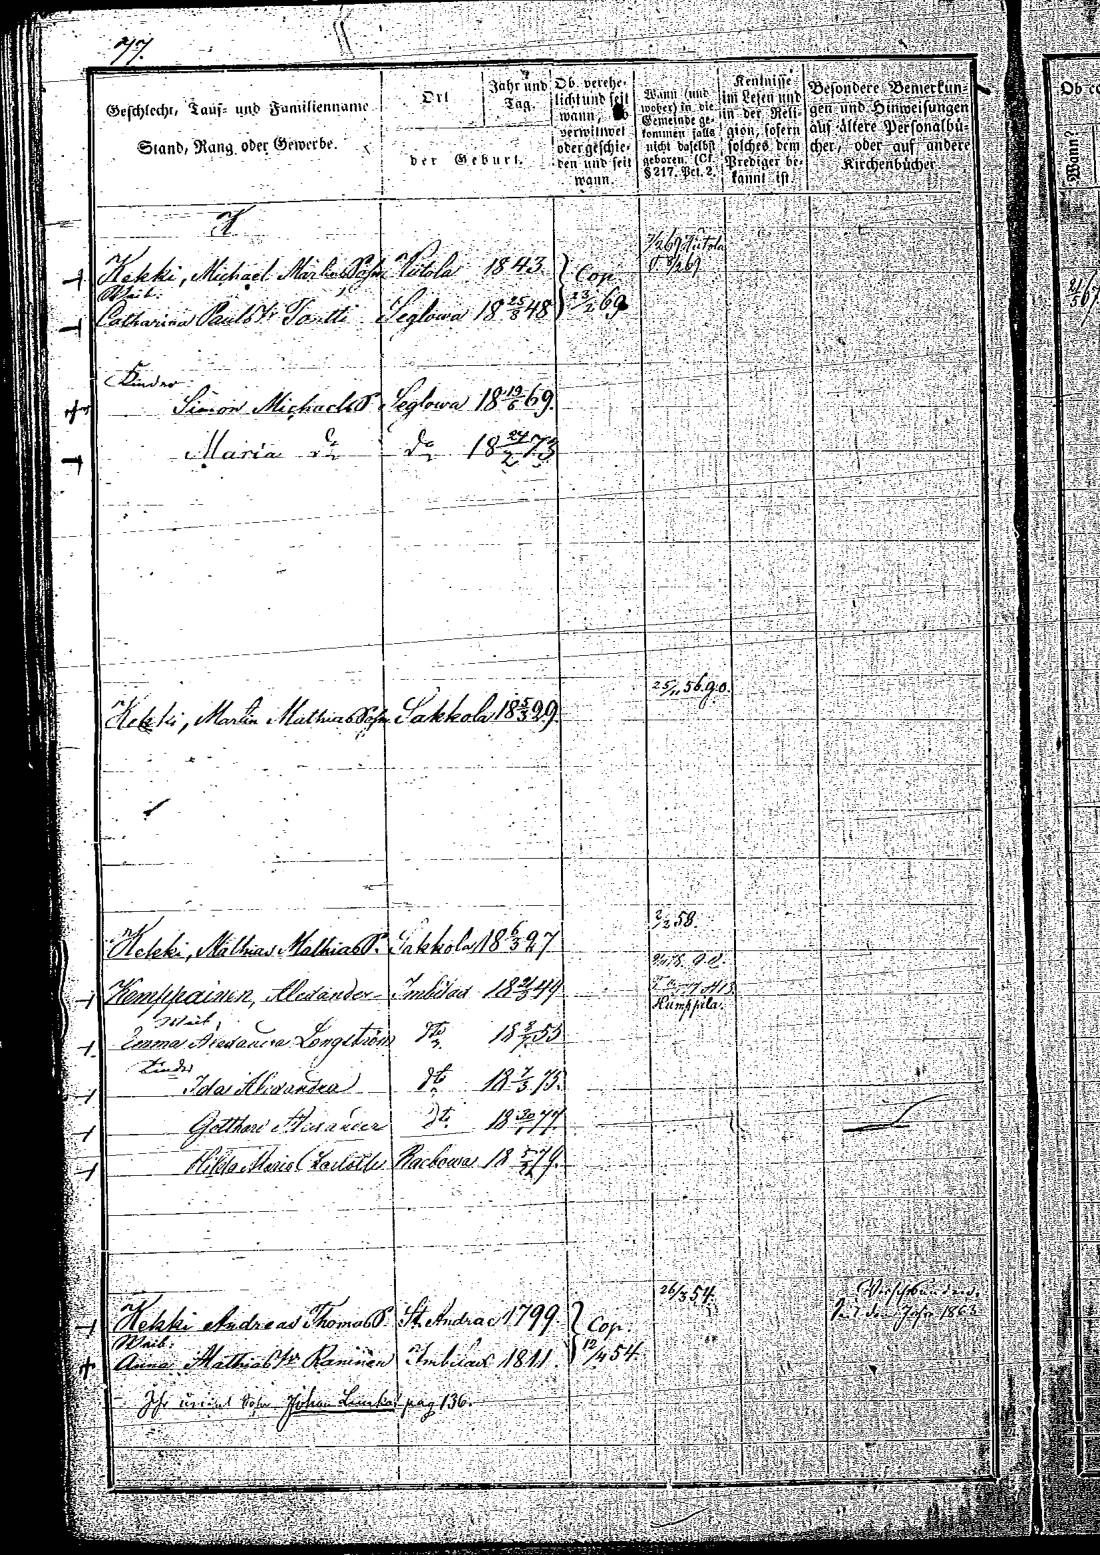 77.
Geschlecht, Tauf- und Familienname
Stand, Rang oder Gewerbe.
Ort
Jahr und
Tag.
der Geburt.
Ob verehe-
licht und seit
wann, ob
verwittwet
oder geschie-
den und seit
wann.
Wann (und
woher) in die
Gemeinde ge-
kommen falls
nicht daselbst
geboren. (Cf.
§ 217. Pct. 2.
Kentnisse
im Lesen und
in der Reli-
gion, sofern
solches dem
Prediger be-
kannt ist.
Besondere Bemerkun-
gen und Hinweisungen
auf ältere Personalbü-
cher, oder auf andere
Kirchenbücher
Wann?
K
Kekki, Michael Martins Sohn Kitola 1843. Cop.
Weib:
Catharina Pauls Tontti Seglowa 18 25/3 48 23/2 69
Kinder
Simon Michaels S. Seglowa 18 19/6 69.
Maria do do 18 24/2 73
25/11 56.
Kekki, Martin Mathias Sohn Sakkola 18 5/3 29
2/2 58.
Kekki, Mathias Mathias S. Sakkola 18 6/3 27
Kemppainen, Alexander Imbilax 18 21/3 49
Humppila.
Weib,
Emma Alexandra Longström Dto 18 3/7 53
Kinder
Ida Alexandra dt 18 7/3 75.
Gotthard Alexander Dt. 18 30/1 77
Hilda Maria Rachowa 18 79.
26/3 54.
Kekki Andreas Thomas S. St. Andrae 1799. Cop.
Weib:
Anna Mathias Raninen Imbilax 1811. 12/4 54.
Johan pag 136.